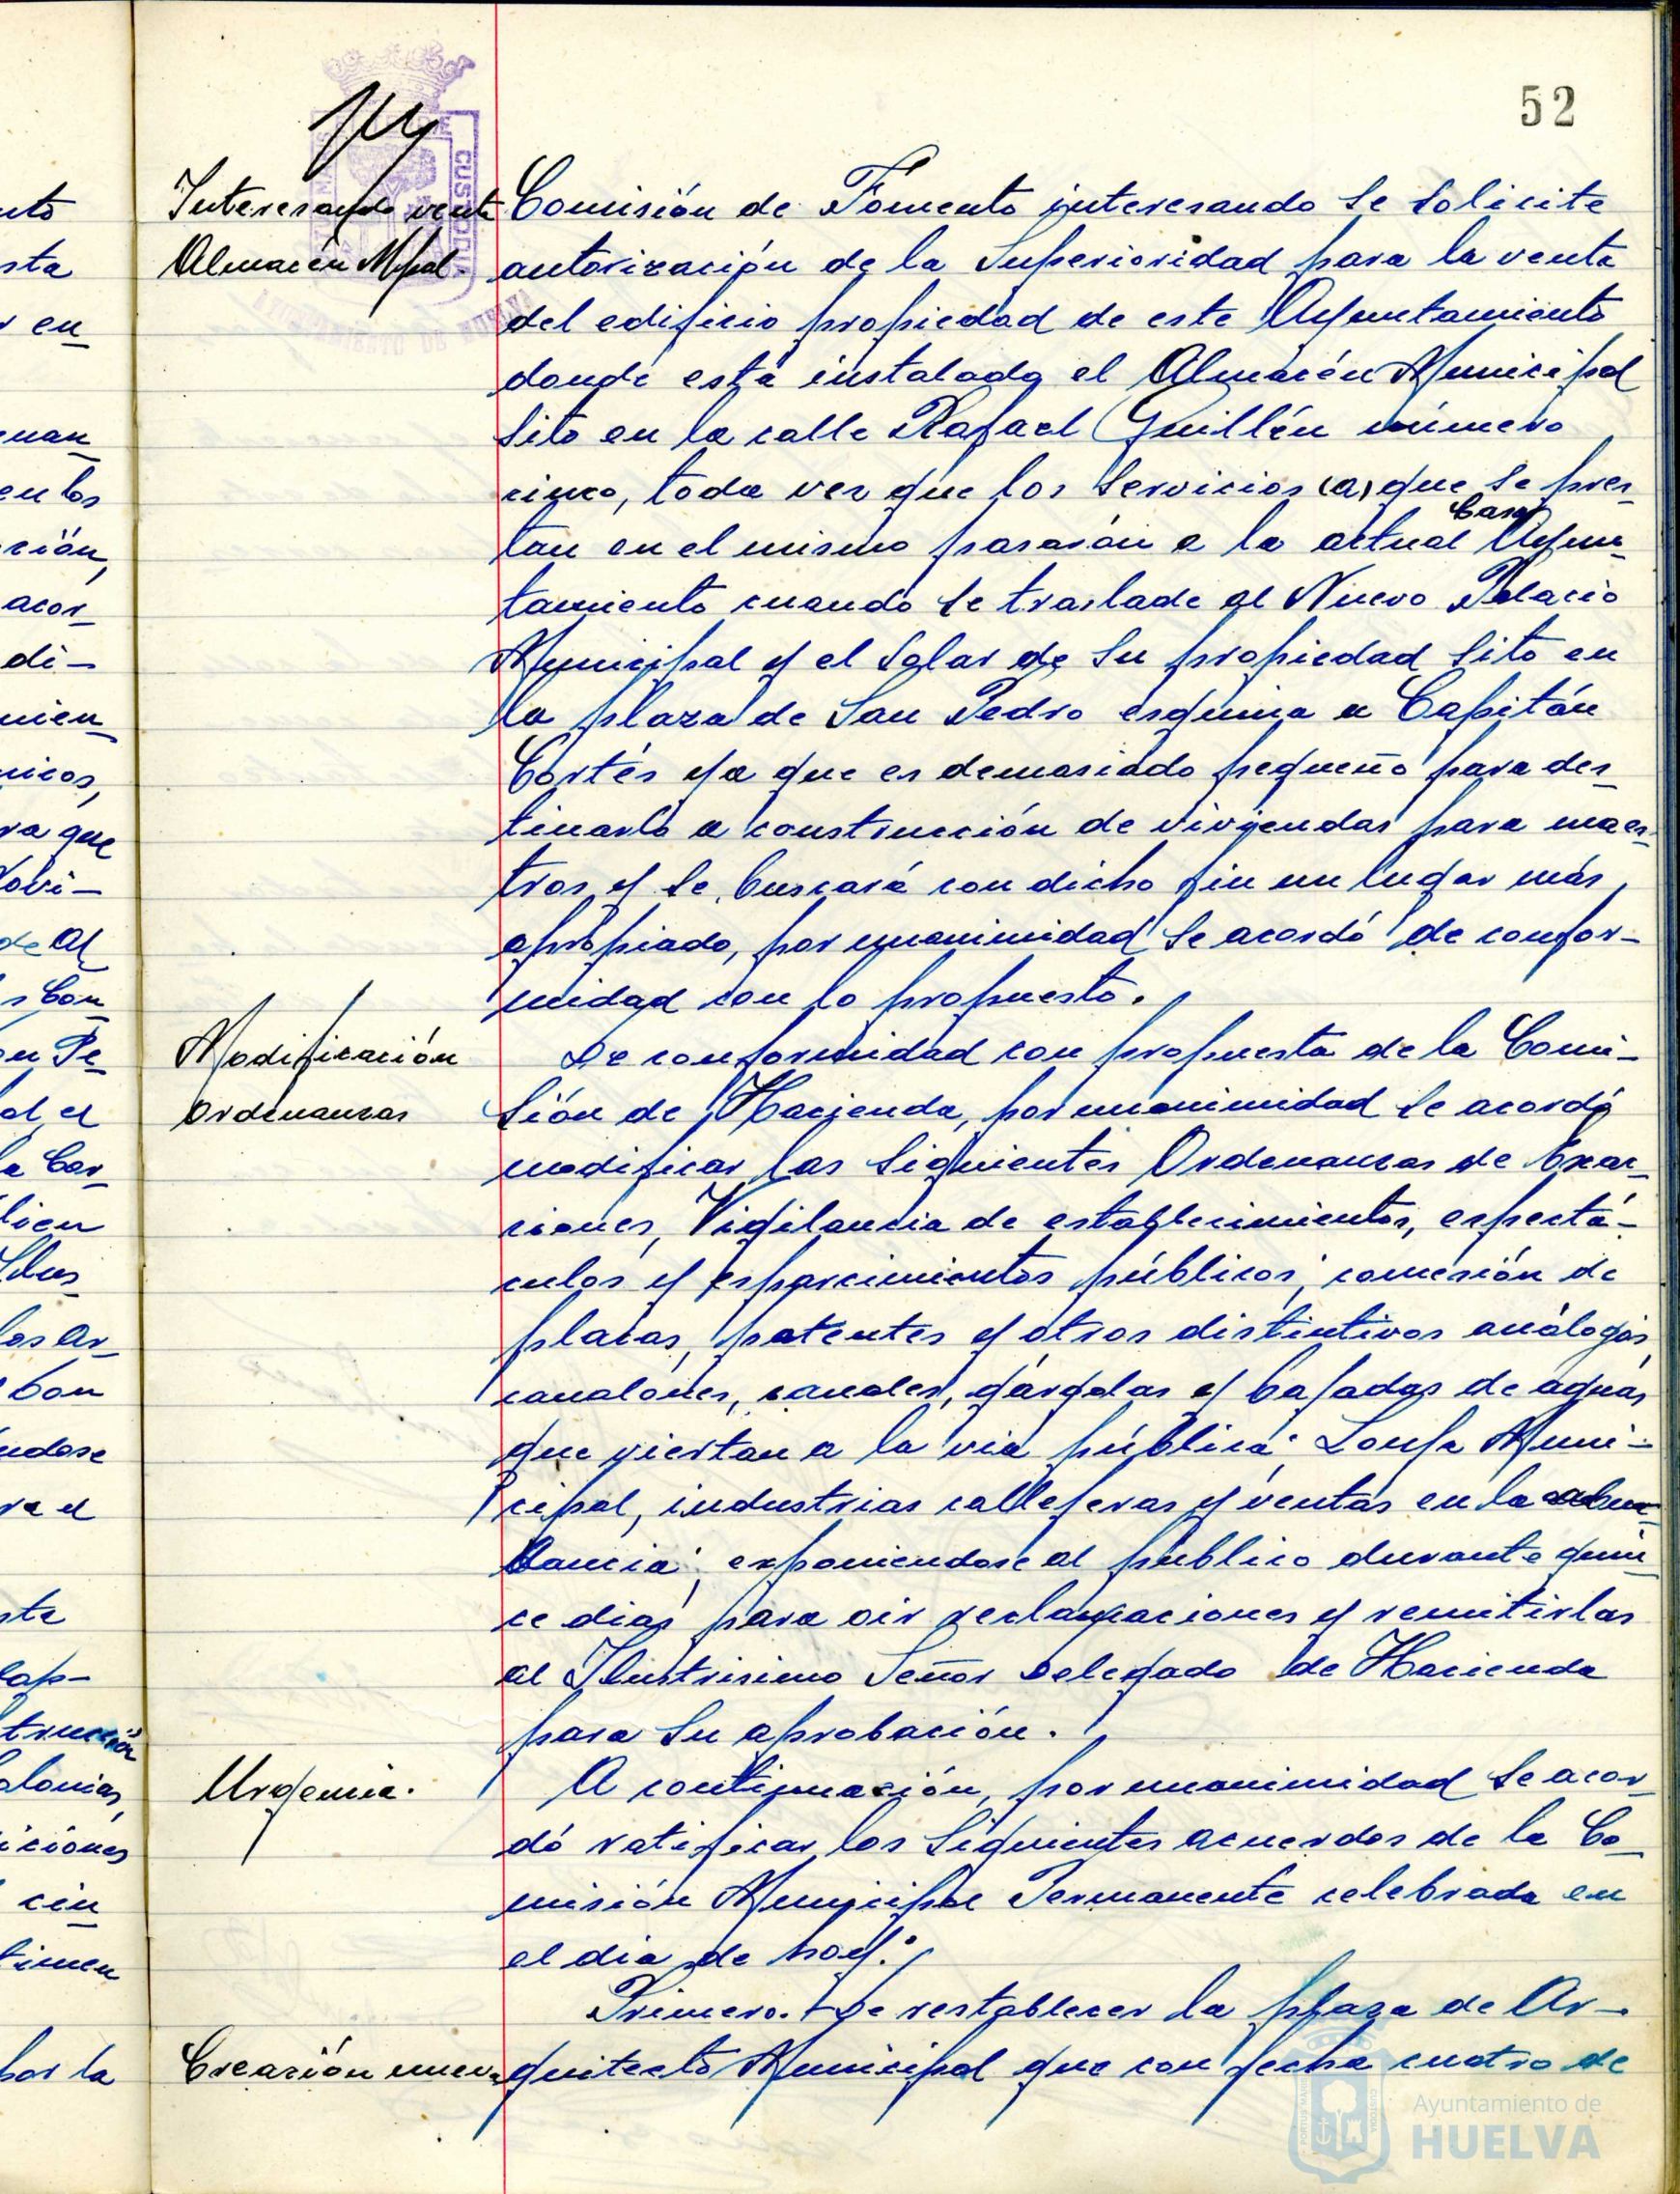 52
Interesando venta
Almacén Mpal.
Comisión de Fomento interesando se solicite
autorización de la Superioridad para la venta
del edificio propiedad de este Ayuntamiento
donde está instalado el Almacén Municipal
sito en la calle Rafael Guillén número
cinco, toda vez que los servicios (a) que se pres-
tan en el mismo pasarán a la actual Casa Ayun-
tamiento cuando se traslade al Nuevo Palacio
Municipal y el solar de su propiedad sito en
la plaza de San Pedro esquina a Capitán
Cortés ya que es demasiado pequeño para des-
tinarlo a construcción de viviendas para maes-
tros y se buscará con dicho fin un lugar más
apropiado, por unanimidad se acordó de confor-
midad con lo propuesto.
Modificación
Ordenanzas
De conformidad con propuesta de la Comi-
sión de Hacienda, por unanimidad se acordó
modificar las siguientes Ordenanzas de Exac-
ciones, Vigilancia de establecimientos, espectá-
culos y esparcimientos públicos; concesión de
placas, patentes y otros distintivos análogos,
canalones, canales, gárgolas y bajadas de aguas
que viertan a la via pública; Lonja Muni-
cipal, industrias callejeras y ventas en la ambu-
lancia; exponiendose al público durante quin-
ce dias para oir reclamaciones y remitirlas
al Ilustrisimo Señor Delegado de Hacienda
para su aprobación.
Urgencia.
A continuación, por unanimidad se acor-
dó ratificar los siguientes acuerdos de la Co-
misión Municipal Permanente celebrada en
el dia de hoy:
Primero.- De restablecer la plaza de Ar-
Creación nueva
quitecto Municipal que con fecha cuatro de
Ayuntamiento de
HUELVA